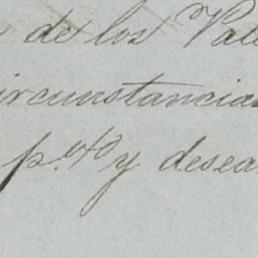 de los Vall
ircunstancias
p.to y desea